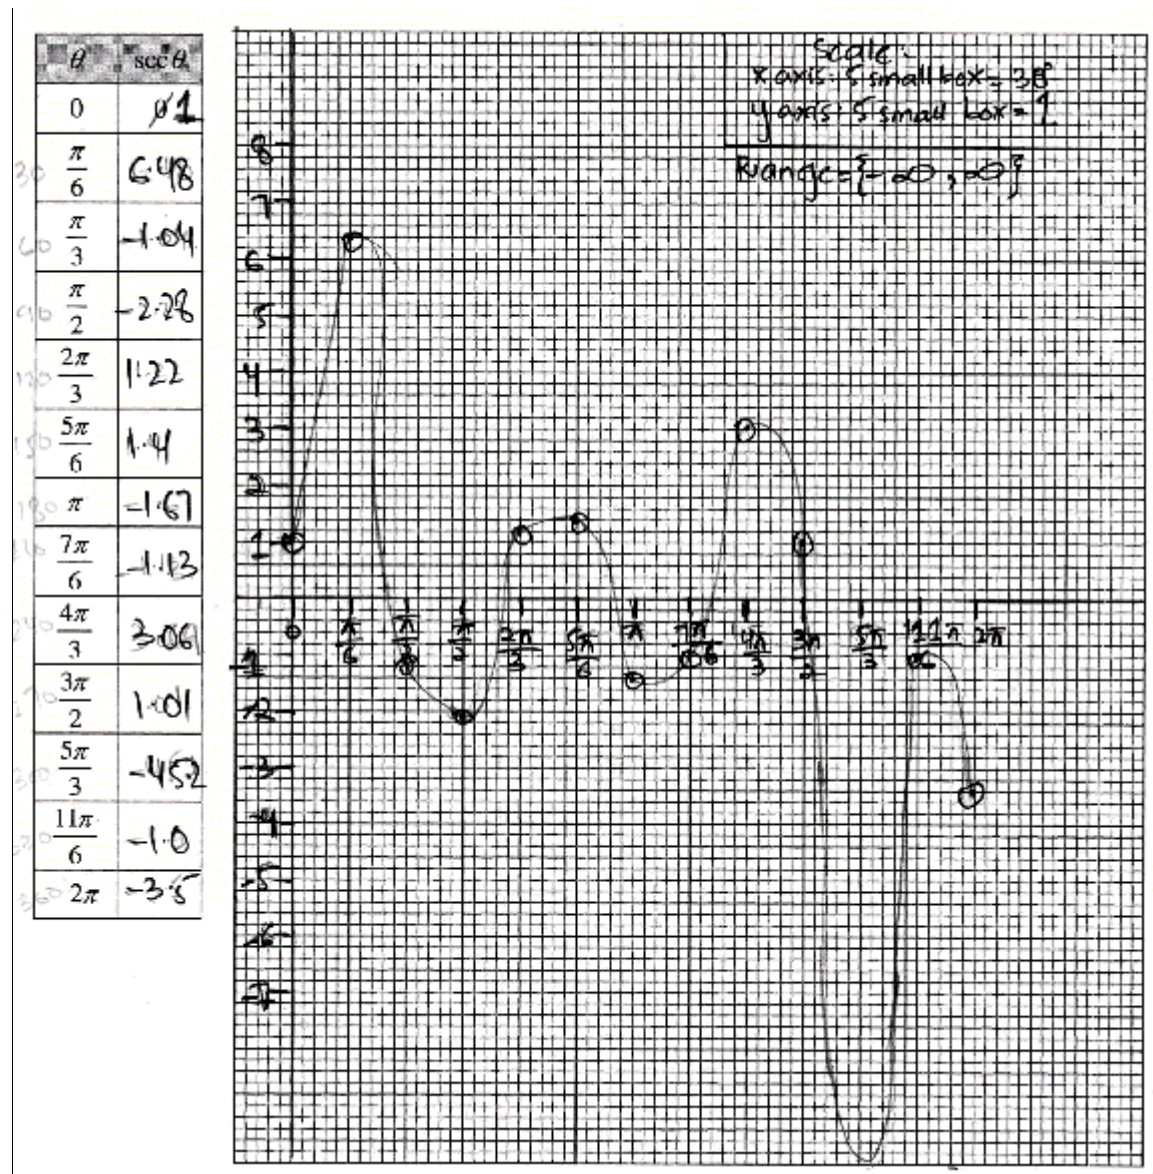 θ sec θ
0 1
30 π/6 6.48
60 π/3 -1.04
90 π/2 -2.28
120 2π/3 1.22
150 5π/6 1.4
180 π -1.67
210 7π/6 -1.13
240 4π/3 3.06
270 3π/2 1.01
300 5π/3 -4.52
11π/6 -1.0
360 2π -3.5
Scale:
x axis: 5 small box = 30°
y axis: 5 small box = 1
Range = {-∞, ∞}
8
7
6
5
4
3
2
1
0 π/6 π/3 π/2 2π/3 5π/6 π 7π/6 4π/3 3π/2 5π/3 11π/6 2π
-1
-2
-3
-4
-5
-6
-7